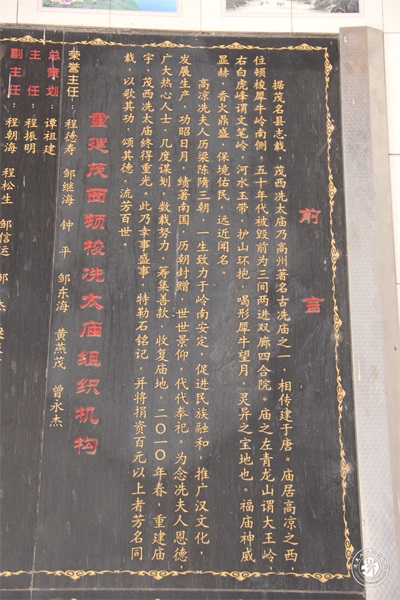 前言
据茂名县志载,茂西冼太庙乃高州著名古冼庙之一,相传建于唐。庙居高凉之西,
位顿梭犀牛岭南侧,五十年代被毁前为三间两进双廊四合院。庙之左青龙山谓大王岭,
右白虎峰谓文笔岭,河水玉带,护山环抱,喝形犀牛望月,灵异之宝地也。福庙神威
显赫,香火鼎盛,保境佑民,远近闻名。
高凉冼夫人历梁陈隋三朝,一生致力于岭南安定,促进民族融和,推广汉文化,
发展生产,功昭日月,绩著南国,历朝封赠,世世景仰,代代奉祀。为念冼夫人恩德,
广大热心士人,几度谋划,毅载努力,筹集善款,收复庙地,二〇一〇年春,重建庙
宇,茂西冼太庙终得重光,此乃幸事盛事,特勒石铭记,并将捐资百元以上者芳名同
载,以歌其功,颂其德,流芳百世。
重建茂西顿梭冼太庙组织机构
荣誉主任:程德寿 邹继海 钟平 邹东海 黄燕茂 曾永杰
总策划:谭祖建
主任:程振明
副主任:程朝海 程松生 邹信运 邹 杰